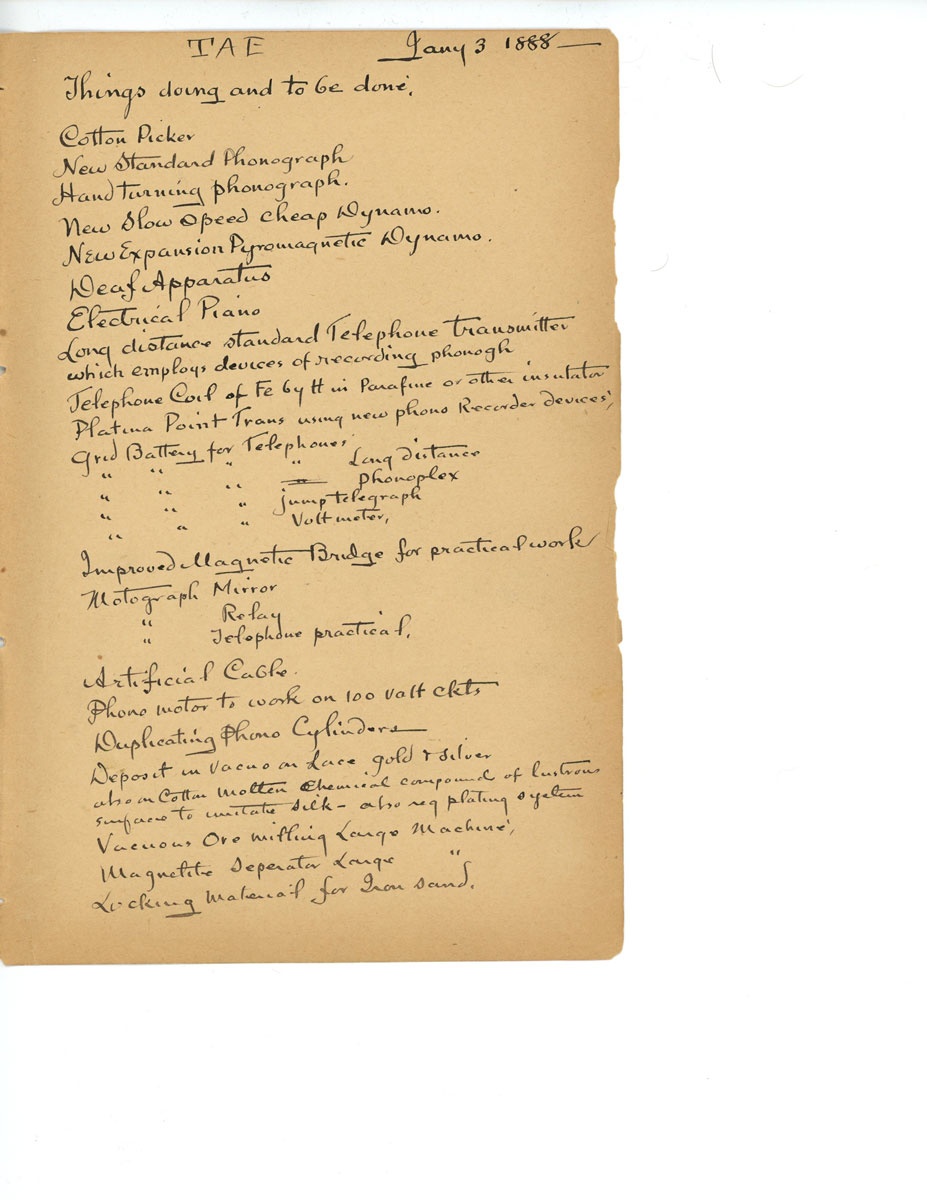 TAE Jany 3 1888 —
Things doing and to be done.
Cotton Picker
New Standard Phonograph
Hand turning phonograph.
New Slow Speed cheap Dynamo.
New Expansion Pyromagnetic Dynamo.
Deaf Apparatus
Electrical Piano
Long distance standard Telephone transmitter
which employs devices of recording phonogh
Telephone Coil of Fe by H in Parafine or other insulator
Platina Point Trans using new phono Recorder devices,
Grid Battery for Telephones
" " " " Long distance
" " " = phonoplex
" " " jump telegraph
" " " Voltmeter,
Improved Magnetic Bridge for practical work
Motograph Mirror
" Relay
" Telephone practical,
Artificial Cable.
Phono motor to work on 100 volt ckts
Duplicating Phono Cylinders
Deposit in vacuo on lace gold + silver
also on Cotton molten chemical compound of lustrous
surface to imitate silk - also reg plating system
Vacuous Ore milling Large Machine,
Magnetite Seperator Large "
Locking material for Iron sand.